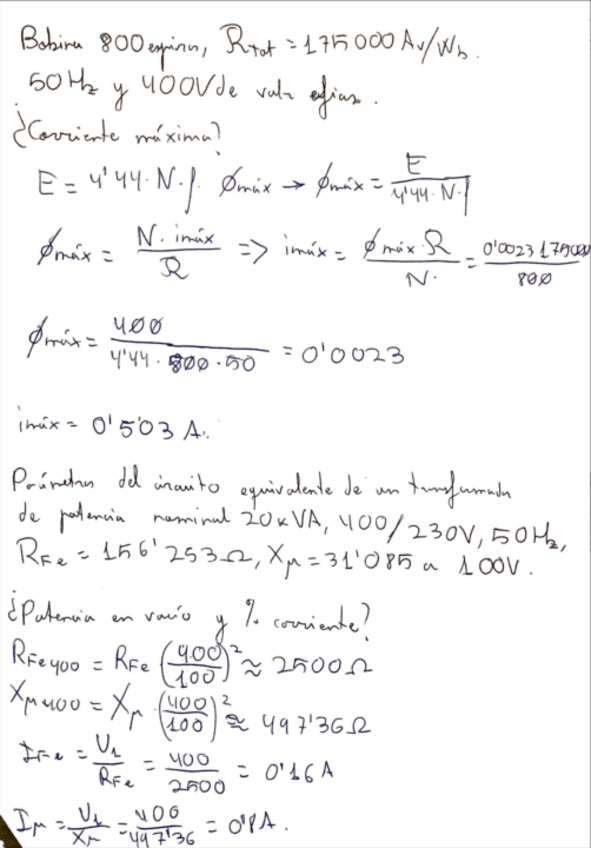 Bobina 800 espiras, Rtot = 175000 Av/Wb.
50 Hz y 400V de valor eficaz.
¿Corriente máxima?
E = 4'44·N·f·Φmáx → Φmáx = E / 4'44·N·f
Φmáx = N·imáx / R => imáx = Φmáx·R / N· = 0'0023·175000 / 800
Φmáx = 400 / 4'44·800·50 = 0'0023
imáx = 0'503 A.
Parámetros del circuito equivalente de un transformador
de potencia nominal 20kVA, 400/230V, 50Hz,
RFe = 156'253Ω, Xμ = 31'085 a 100V.
¿Potencia en vacío y % corriente?
RFe400 = RFe (400/100)² ≈ 2500Ω
Xμ400 = Xμ·(400/100)² ≈ 497'36Ω
IFe = U1/RFe = 400/2500 = 0'16A
Iμ = U1/Xμ = 400/497'36 = 0'8A.